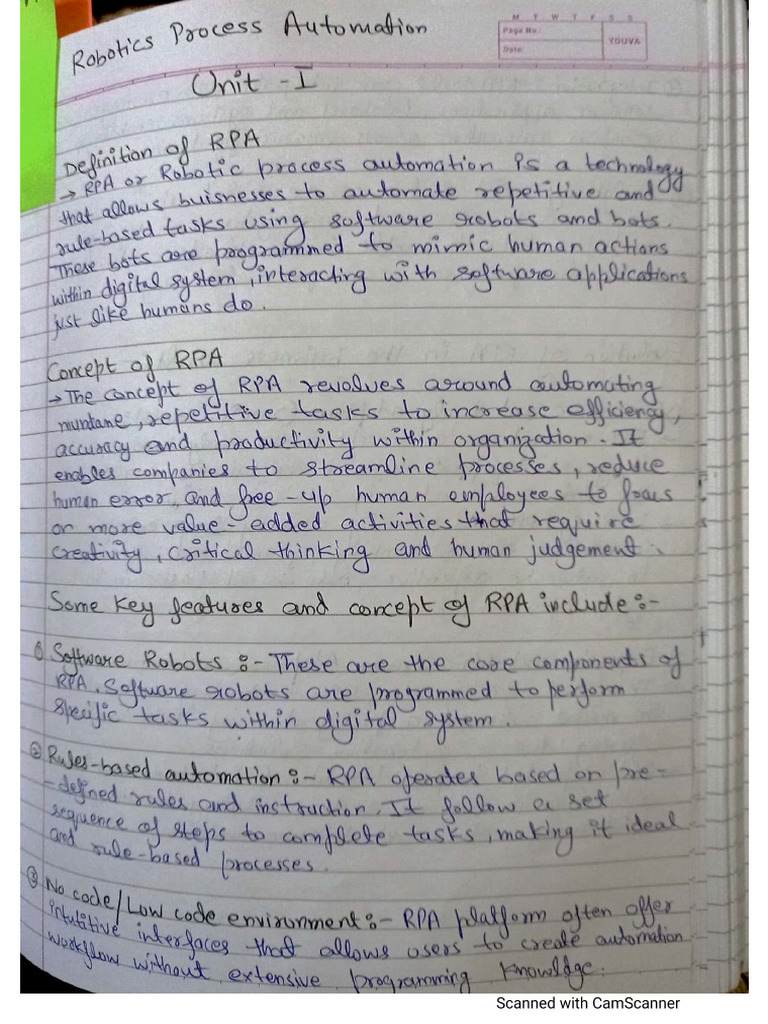 Robotics Process Automation
M T W T F S S
Page No.:
Date:
YOUVA
Unit - I
Definition of RPA
→ RPA or Robotic process automation is a technology
that allows buisnesses to automate repetitive and
rule-based tasks using software robots and bots.
These bots are programmed to mimic human actions
within digital system, interacting with software applications
just like humans do.
Concept of RPA
→ The concept of RPA revolves around automating
muntane, repetitive tasks to increase efficiency,
accuracy and productivity within organization. It
enables companies to streamline processes, reduce
human error, and free-up human employees to focus
on more value-added activities that require
creativity, critical thinking and human judgement.
Some key features and concept of RPA include:-
① Software Robots :- These are the core components of
RPA. Software robots are programmed to perform
specific tasks within digital system.
② Rules-based automation :- RPA operates based on pre-
-defined rules and instruction. It follow a set
sequence of steps to complete tasks, making it ideal
and rule-based processes.
③ No code/Low code environment:- RPA platform often offer
intutitive interfaces that allows users to create automation
workflow without extensive programming knowldge.
Scanned with CamScanner